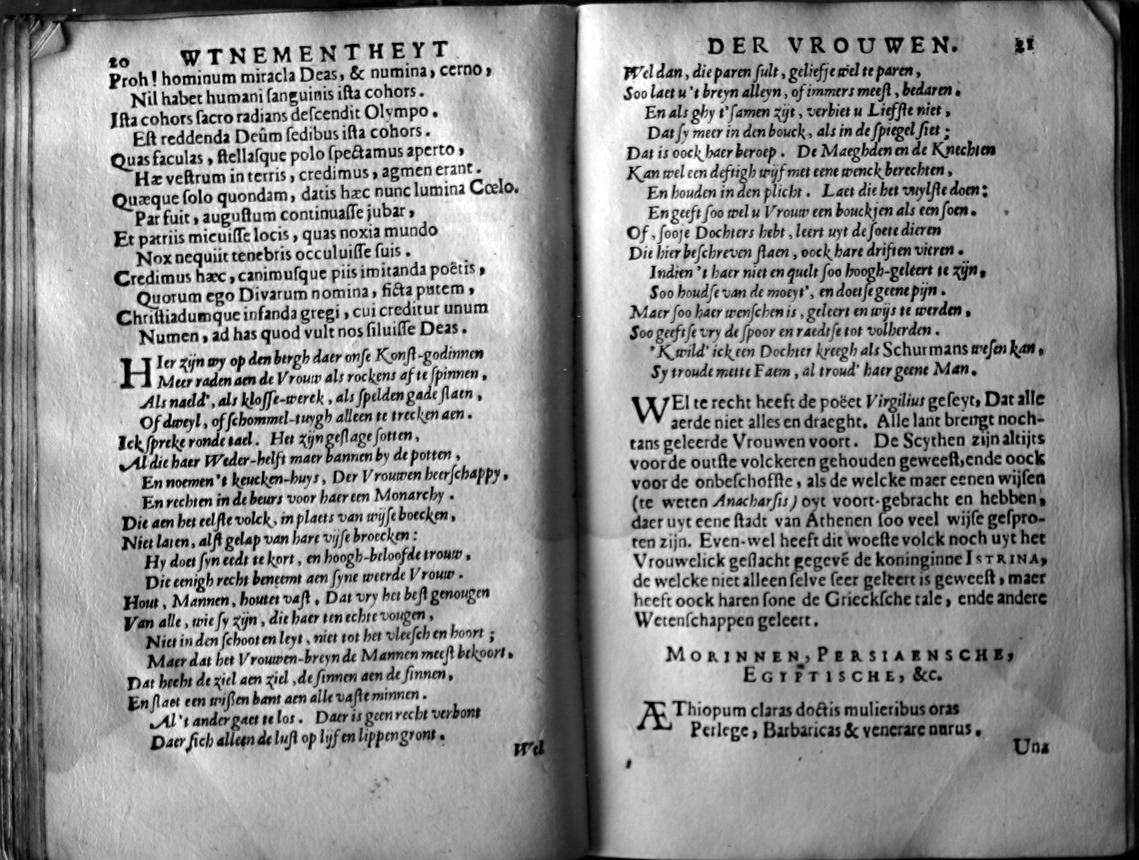 20 WTNEMENTHEYT
Proh! hominum miracla Deas, & numina, cerno,
Nil habet humani ſanguinis iſta cohors.
Iſta cohors ſacro radians deſcendit Olympo.
Eſt reddenda Deûm ſedibus iſta cohors.
Quas faculas, ſtellaſque polo ſpectamus aperto,
Hæ veſtrum in terris, credimus, agmen erant.
Quæque ſolo quondam, datis hæc nunc lumina Cœlo.
Par fuit, auguſtum continuaſſe jubar,
Et patriis micuiſſe locis, quas noxia mundo
Nox nequiit tenebris occuluiſſe ſuis.
Credimus hæc, canimuſque piis imitanda poëtis,
Quorum ego Divarum nomina, ficta putem,
Chriſtiadumque infanda gregi, cui creditur unum
Numen, ad has quod vult nos ſiluiſſe Deas.
HIer zijn wy op den bergh daer onſe Konſt-godinnen
Meer raden aen de Vrouw als rockens af te ſpinnen,
Als nadd', als kloſſe-werck, als ſpelden gade ſlaen,
Of dweyl, of ſchommel-tuygh alleen te trecken aen.
Ick ſpreke ronde tael. Het zijn geſlage ſotten,
Al die haer Weder-helft maer bannen by de potten,
En noemen 't keucken-huys, Der Vrouwen heerſchappy,
En rechten in de beurs voor haer een Monarchy.
Die aen het eelſte volck, in plaets van wijſe boecken,
Niet laten, alſt gelap van hare vijſe broecken:
Hy doet ſyn eedt te kort, en hoogh-beloofde trouw,
Die eenigh recht beneemt aen ſyne weerde Vrouw.
Hout, Mannen, houtet vaſt, Dat vry het beſt genougen
Van alle, wie ſy zijn, die haer ten echte vougen,
Niet in den ſchoot en leyt, niet tot het vleeſch en hoort;
Maer dat het Vrouwen-breyn de Mannen meeſt bekoort.
Dat hecht de ziel aen ziel, de ſinnen aen de ſinnen,
En ſlaet een wißen bant aen alle vaſte minnen.
Al 't ander gaet te los. Daer is geen recht verbont
Daer ſich alleen de luſt op lijf en lippen gront.
Wel
DER VROUWEN. 21
Wel dan, die paren ſult, geliefje wel te paren,
Soo laet u 't breyn alleyn, of immers meeſt, bedaren.
En als ghy t'ſamen zijt, verbiet u Liefſte niet,
Dat ſy meer in den bouck, als in de ſpiegel ſiet;
Dat is oock haer beroep. De Maeghden en de Knechten
Kan wel een deftigh wijf met eene wenck berechten,
En houden in den plicht. Laet die het vuylſte doen:
En geeft ſoo wel u Vrouw een bouckjen als een ſoen.
Of, ſooje Dochters hebt, leert uyt de ſoete dieren
Die hier beſchreven ſtaen, oock hare driften vieren.
Indien 't haer niet en quelt ſoo hoogh-geleert te zijn,
Soo houdſe van de moeyt', en doetſe geene pijn.
Maer ſoo haer wenſchen is, geleert en wijs te werden,
Soo geeftſe vry de ſpoor en raedtſe tot volherden.
'K wild' ick een Dochter kreegh als Schurmans weſen kan,
Sy troude mette Faem, al troud' haer geene Man.
WEl te recht heeft de poëet Virgilius geſeyt, Dat alle
aerde niet alles en draeght. Alle lant brengt noch-
tans geleerde Vrouwen voort. De Scythen zijn altijts
voor de outſte volckeren gehouden geweeſt, ende oock
voor de onbeſchoffte, als de welcke maer eenen wijſen
(te weten Anacharſis) oyt voort-gebracht en hebben,
daer uyt eene ſtadt van Athenen ſoo veel wijſe geſpro-
ten zijn. Even-wel heeft dit woeſte volck noch uyt het
Vrouwelick geſlacht gegevē de koninginne ISTRINA,
de welcke niet alleen ſelve ſeer geleert is geweeſt, maer
heeft oock haren ſone de Grieckſche tale, ende andere
Wetenſchappen geleert.
MORINNEN, PERSIAENSCHE,
EGYPTISCHE, &c.
ÆThiopum claras doctis mulieribus oras
Perlege, Barbaricas & venerare nurus.
Una